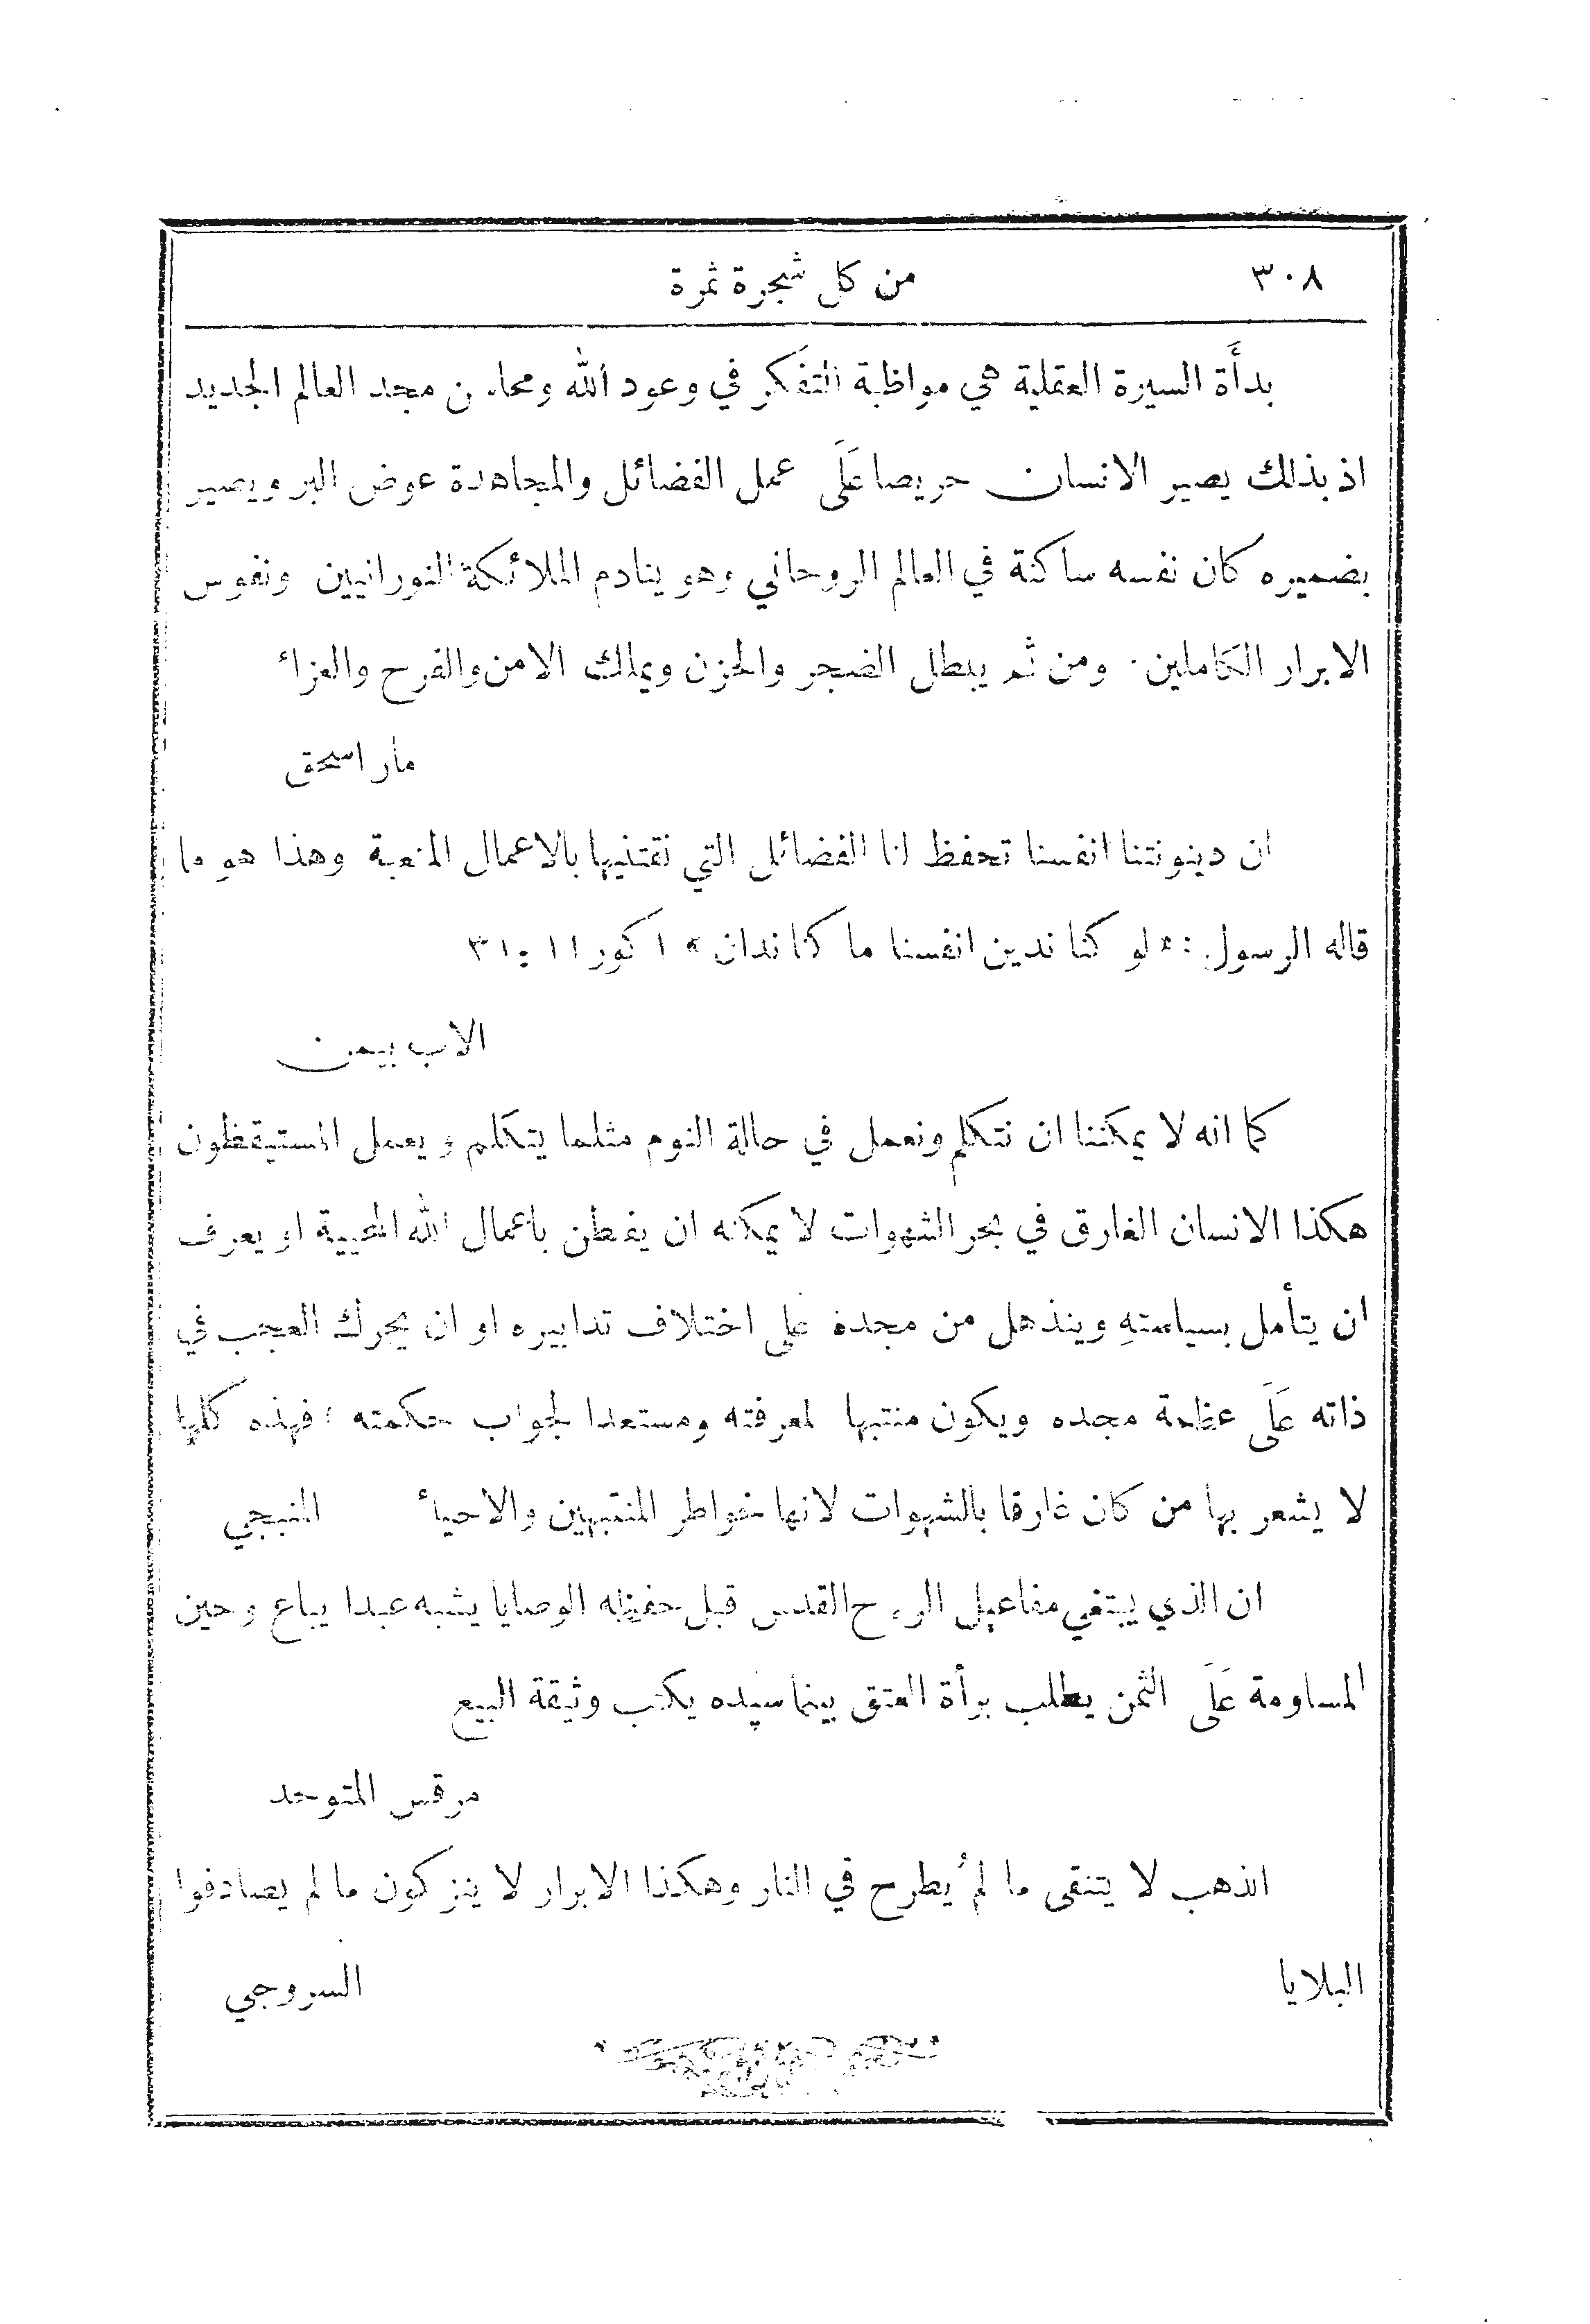 ٣٠٨ من كل شجرة ثمرة
بدأَة السيرة العقلية هي مواظبة التفكر في وعود الله ومحاسن مجد العالم الجديد
اذ بذلك يصير الانسان حريصا عَلَى عمل الفضائل والمجاهدة عوض البر ويصير
بضميره كان نفسه ساكنة في العالم الروحاني وهو ينادم الملائكة النورانيين ونفوس
الابرار الكاملين · ومن ثم يبطل الضجر والحزن ويملك الامن والفرح والعزاء
مار اسحق
ان دينونتنا انفسنا تحفظ لنا الفضائل التي نقتنيها بالاعمال المتعبة وهذا هو ما
قاله الرسول : « لو كنا ندين انفسنا ما كنا ندان » ١ كور ١١ : ٣١
الاب بيمن
كما انه لا يمكننا ان نتكلم ونعمل في حالة النوم مثلما يتكلم ويعمل المستيقظون
هكذا الانسان الغارق في بحر الشهوات لا يمكنه ان يفطن باعمال الله المحيية او يعرف
ان يتأمل بسياسته وينذهل من مجده على اختلاف تدابيره او ان يحرك العجب في
ذاته عَلَى عظمة مجده ويكون منتبها لمعرفته ومستعدا لجواب حكمته ؛ فهذه كلها
لا يشعر بها من كان غارقا بالشهوات لانها خواطر المنتبهين والاحياء المنبجي
ان الذي يبتغي مفاعيل الروح القدس قبل حفظه الوصايا يشبه عبدا يباع وحين
المساومة عَلَى الثمن يطلب برأة العتق بينما سيده يكتب وثيقة البيع
مرقس المتوحد
الذهب لا يتنقى ما لم يُطرح في النار وهكذا الابرار لا يتزكون ما لم يصادفوا
البلايا السروجي